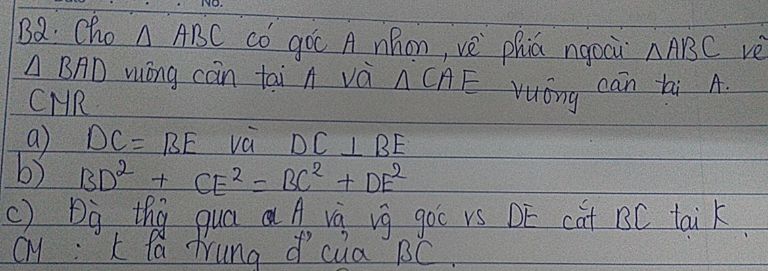 No.
B2. Cho Δ ABC có góc A nhọn, vẽ phiá ngoài ΔABC vẽ
Δ BAD vuông cân tại A và Δ CAE vuông cân tại A.
CMR
a) DC = BE và DC ⊥ BE
b) BD² + CE² = BC² + DE²
c) Đg thg qua A và vg góc vs DE cắt BC tại K.
CM : K là trung đ' của BC.